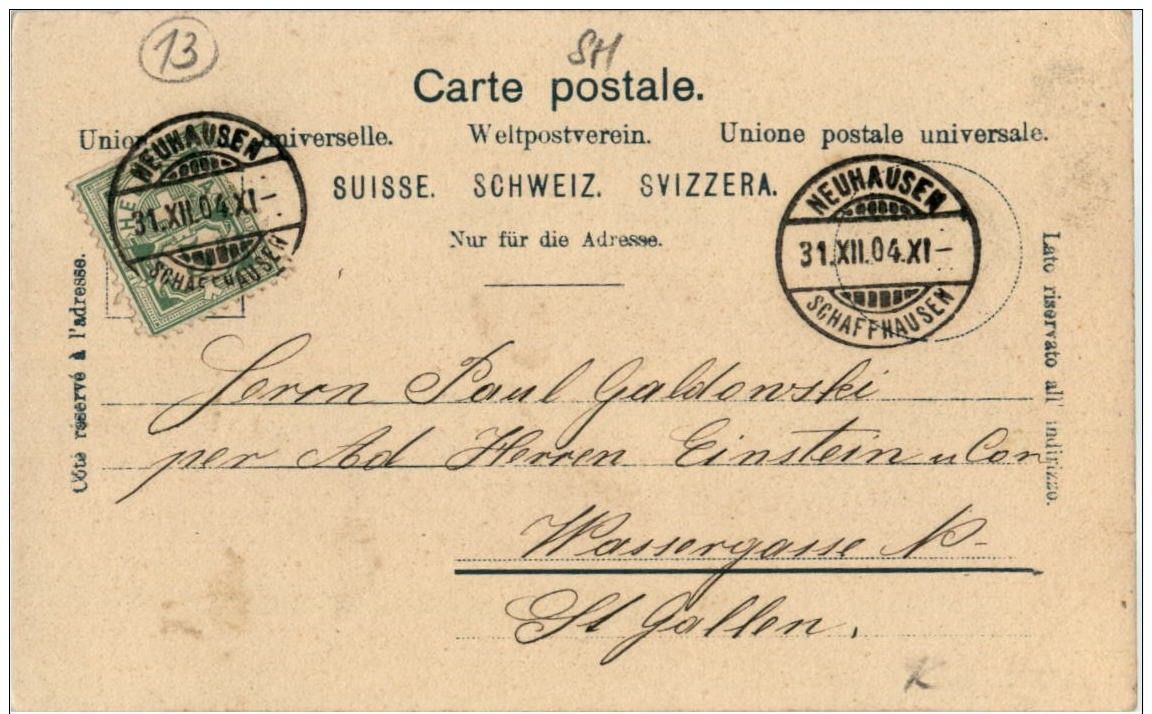 13
SH
Carte postale.
Union universelle. Weltpostverein. Unione postale universale.
SUISSE. SCHWEIZ. SVIZZERA.
Nur für die Adresse.
NEUHAUSEN
31.XII.04.XI-
SCHAFFHAUSEN
HE
NEUHAUSEN
31.XII.04.XI-
SCHAFFHAUSEN
Côté réservé à l'adresse.
Lato riservato all' indirizzo.
Herrn Paul Galdowski
per Ad Herren Einstein u Con
Wassergasse No
St Gallen.
K